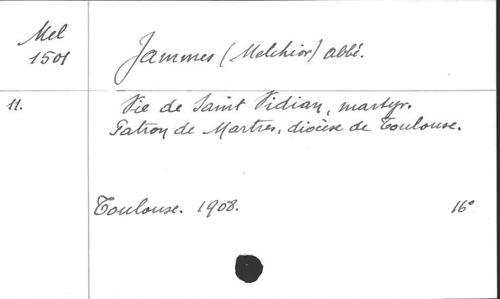 Mel
1501
Jammes (Melchior) abbé.
11.
Vie de Saint Vidian, martyr.
Patron de Martres, diocèse de Toulouse.
Toulouse. 1908.
16°